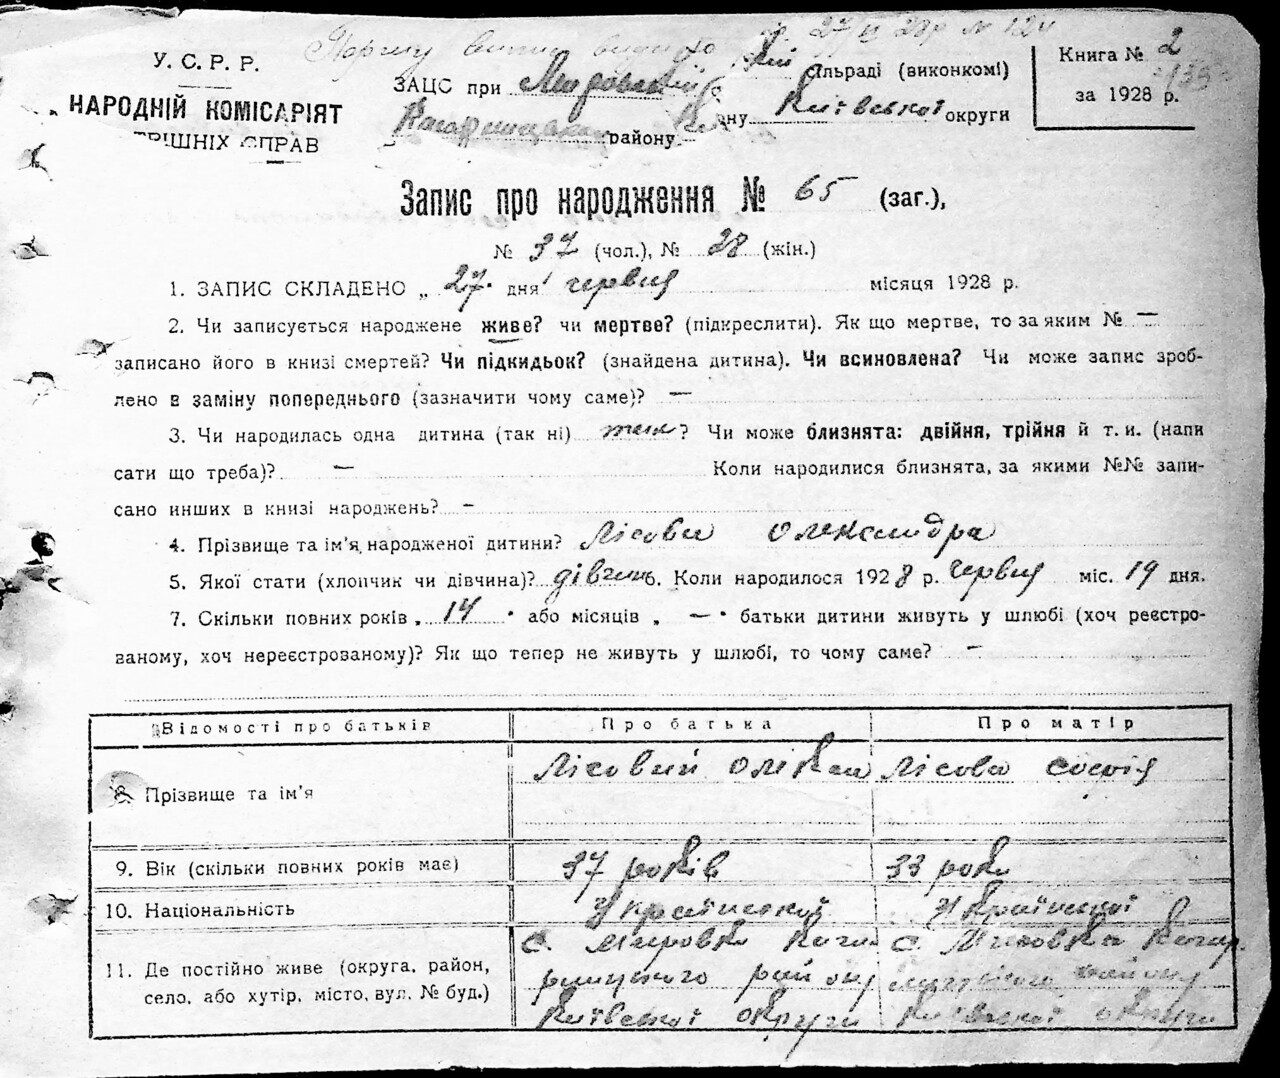 27 VI 28р № 124
У. С. Р. Р.
НАРОДНІЙ КОМІСАРІЯТ
РІШНІХ СПРАВ
ЗАЦС при Мировській сільраді (виконкомі)
району Київської округи
Книга № 2
за 1928 р.
Запис про народження № 65 (заг.),
№ 37 (чол.), № 28 (жін.)
1. ЗАПИС СКЛАДЕНО „ 27 дня червня місяця 1928 р.
2. Чи записується народжене живе? чи мертве? (підкреслити). Як що мертве, то за яким № —
записано його в книзі смертей? Чи підкидьок? (знайдена дитина). Чи всиновлена? Чи може запис зроб-
лено в заміну попереднього (зазначити чому саме)? —
3. Чи народилась одна дитина (так ні) так? Чи може близнята: двійня, трійня й т. и. (напи
сати що треба)? — Коли народилися близнята, за якими №№ запи-
сано инших в книзі народжень? —
4. Прізвище та ім'я народженої дитини? Лісова Олександра
5. Якої стати (хлопчик чи дівчина)? дівчин 6. Коли народилося 1928 р. червня міс. 19 дня.
7. Скільки повних років „ 14 " або місяців „ — " батьки дитини живуть у шлюбі (хоч реєстро-
ваному, хоч нереєстрованому)? Як що тепер не живуть у шлюбі, то чому саме? —
Відомості про батьків Про батька Про матір
8. Прізвище та ім'я Лісовий Лісова Софія
9. Вік (скільки повних років має) 37 років 33 роки
10. Національність Української Української
11. Де постійно живе (округа, район,
село, або хутір, місто, вул. № буд.)
с. Мировка Кага
рлицького району
Київської округи
с. Мировка Кагар
лицького району
Київської округи